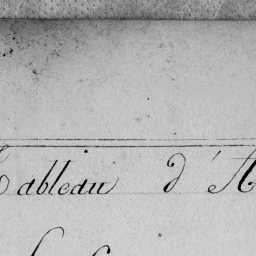 Tableau d'A